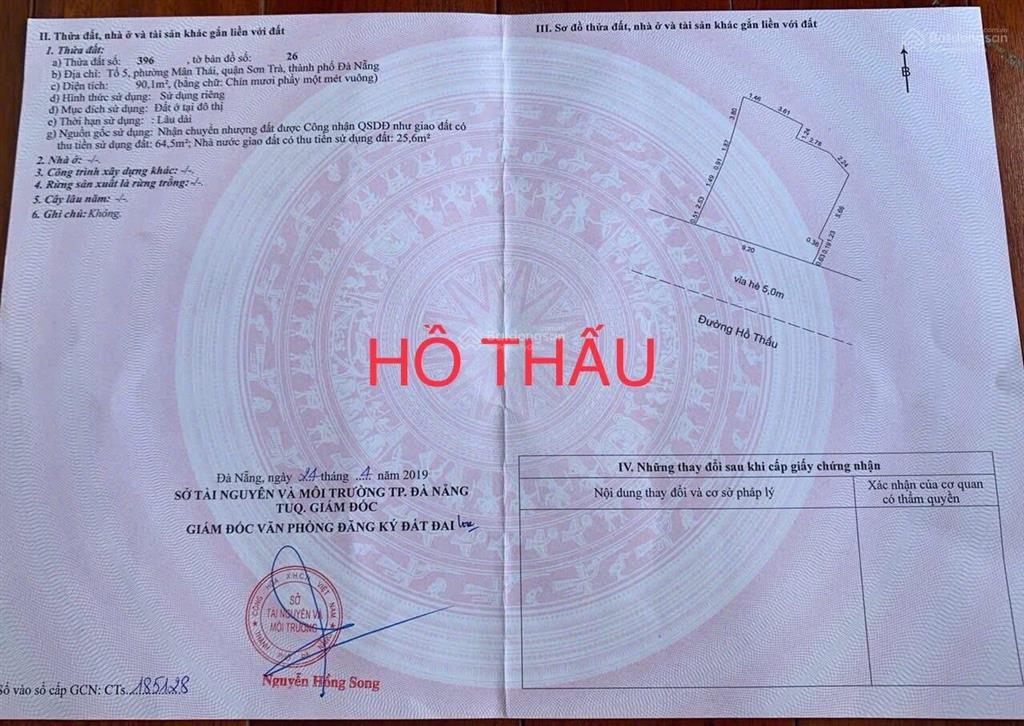 II. Thửa đất, nhà ở và tài sản khác gắn liền với đất
1. Thửa đất:
a) Thửa đất số: 396 , tờ bản đồ số: 26
b) Địa chỉ: Tổ 5, phường Mân Thái, quận Sơn Trà, thành phố Đà Nẵng
c) Diện tích: 90,1m², (bằng chữ: Chín mươi phẩy một mét vuông)
d) Hình thức sử dụng: Sử dụng riêng
đ) Mục đích sử dụng: Đất ở tại đô thị
e) Thời hạn sử dụng: : Lâu dài
g) Nguồn gốc sử dụng: Nhận chuyển nhượng đất được Công nhận QSDĐ như giao đất có
thu tiền sử dụng đất: 64,5m²; Nhà nước giao đất có thu tiền sử dụng đất: 25,6m²
2. Nhà ở: -/-.
3. Công trình xây dựng khác: -/-.
4. Rừng sản xuất là rừng trồng: -/-.
5. Cây lâu năm: -/-.
6. Ghi chú: Không.
III. Sơ đồ thửa đất, nhà ở và tài sản khác gắn liền với đất
Batdongsan
B
1.46
3.61
1.24
2.78
2.24
3.80
1.87
0.91
1.49
2.63
0.51
5.66
1.23
0.19
0.63
0.36
9.20
vỉa hè 5,0m
Đường Hồ Thấu
Batdongsan
HỒ THẤU
Đà Nẵng, ngày 24 tháng 4 năm 2019
SỞ TÀI NGUYÊN VÀ MÔI TRƯỜNG TP. ĐÀ NẴNG
TUQ. GIÁM ĐỐC
GIÁM ĐỐC VĂN PHÒNG ĐĂNG KÝ ĐẤT ĐAI
CỘNG HÒA X.H.C.N VIỆT NAM
SỞ
TÀI NGUYÊN VÀ
MÔI TRƯỜNG
Nguyễn Hồng Song
Số vào sổ cấp GCN: CTs. 185128
IV. Những thay đổi sau khi cấp giấy chứng nhận
Nội dung thay đổi và cơ sở pháp lý
Xác nhận của cơ quan
có thẩm quyền